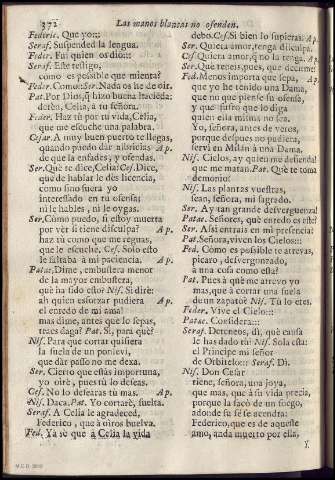 372 Las manos blancas no ofenden.
Federic. Que yo:::
Seraf. Suspended la lengua.
Feder. Fui quien os dió:::
Seraf. Este testigo,
como es possible que mienta?
Feder. Como: Ser. Nada os he de oir.
Pat. Por Dios, hizo buena
Celia, á tu señora.
Feder. Haz tù por tu vida, Celia,
que me escuche una palabra.
Cesar. A muy buen puerto te llegas,
quando puedo dar albricias Ap.
de que la enfades, y ofendas.
Ser. Què te dice, Celia? Ces. Dice,
que de hablar le dès licencia,
como sino fuera yo
interessado en tu ofensa;
ni le hables, ni le oygas.
Ser. Como puedo, si estoy muerta
por vèr si tiene disculpa? Ap.
haz tù como que me ruegas,
que le escuche. Ces. Solo esto
le faltaba á mi paciencia. Ap.
Patac. Dime, embustera menor
de la mayor embustera
que ha sido esto? Nis. Si dirè:
ah quien estorvar pudiera Ap.
el enredo de mi ama!
mas dime, antes que lo sepas,
traes daga? Pat. Sì, para què?
Nis. Para que cortar quisiera
la suela de un ponleví,
que dàr passo no me dexa.
Ser. Cierto que estàs importuna,
yo oirè, pues tú lo deseas.
Ces. No lo desearas tù mas. Ap.
Nis. Daca. Pat. Yo cortarè, suelta.
Seraf. A Celia le agradeced,
Federico, que à oiros buelva.
Fed. Ya sè que á Celia la vida
debo. Ces. Si bien lo supieras: Ap.
Ser. Quiera amor, tenga disculpa.
Ces. Quiera amor, que no la tenga. Ap.
Ser. Que teneis, pues, que decirme?
Fed. Menos importa que sepa, Ap.
que yo he tenido una Dama,
que no que piense su ofensa,
y que sufro que lo diga
quien ella misma no sea.
Yo, señora, antes de veros,
porque despues no pudiera,
servì en Milàn à una Dama.
Nis. Cielos, ay quien me defienda!
que me matan. Pat. Què te toma
demonio?
Nis. Las plantas vuestras,
sean, señora, mi sagrado.
Ser. Ay tan grande desverguenza!
Patac. Señores, què enredo es este?
Ser. Assi entrais en mi presencia?
Pat. Señora, viven los Cielos:::
Fed. Còmo es possible te atrevas,
picaro, desvergonzado,
à una cosa como esta?
Pat. Pues à què me atrevo yo
mas, que á cortar una suela
de un zapato? Nis. Tù lo eres.
Feder. Vive el Cielo:::
Patac. Considera:::
Seraf. Deteneos, di, què causa
le has dado tù? Nis. Sola esta:
el Principe mi señor
de Orbitelo:: Seraf. Di.
Nis. Don Cesar
tiene, señora, una joya,
que mas, que à su vida precia,
porque la sacò de un fuego,
adonde su fè se acendra:
Federico, que es de aqueste
amo, anda muerto por ella,
Y